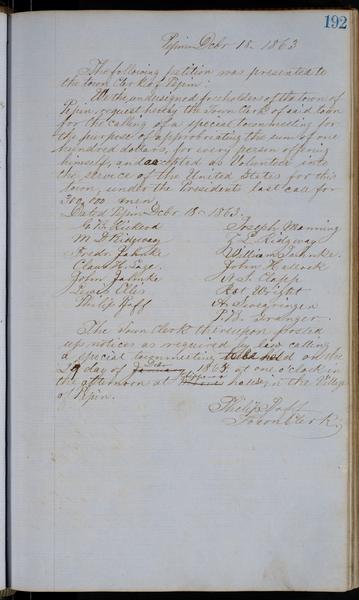 192
Pepin Decbr 18 1863
The following petition was presented to
the town Clerk of Pepin:
We the undersigned freeholders of the town of
Pepin, request hereby the Town Clerk of said town
for the calling of a special townmeeting for
the purpose of approbriating the sum of one
hundred dollars, for every person offering
himself, and accepted as Volunteer into
the service of the United States for this
town, under the Presidents last call for
300,000 men.
Dated Pepin Decbr 18 1863.
Joseph Manning
M D Ridgeway
L L Ridgeway
Fredr. Jahnke
William Jahnke
John Jahnke
Philip Pfaff
The Town Clerk thereupon posted
up notices as required by law calling
a special townmeeting to be held on the
29 day of January Decbr 1863 at one o'clock in
the afternoon at hall in the Village
of Pepin.
Philip Pfaff
Town Clerk